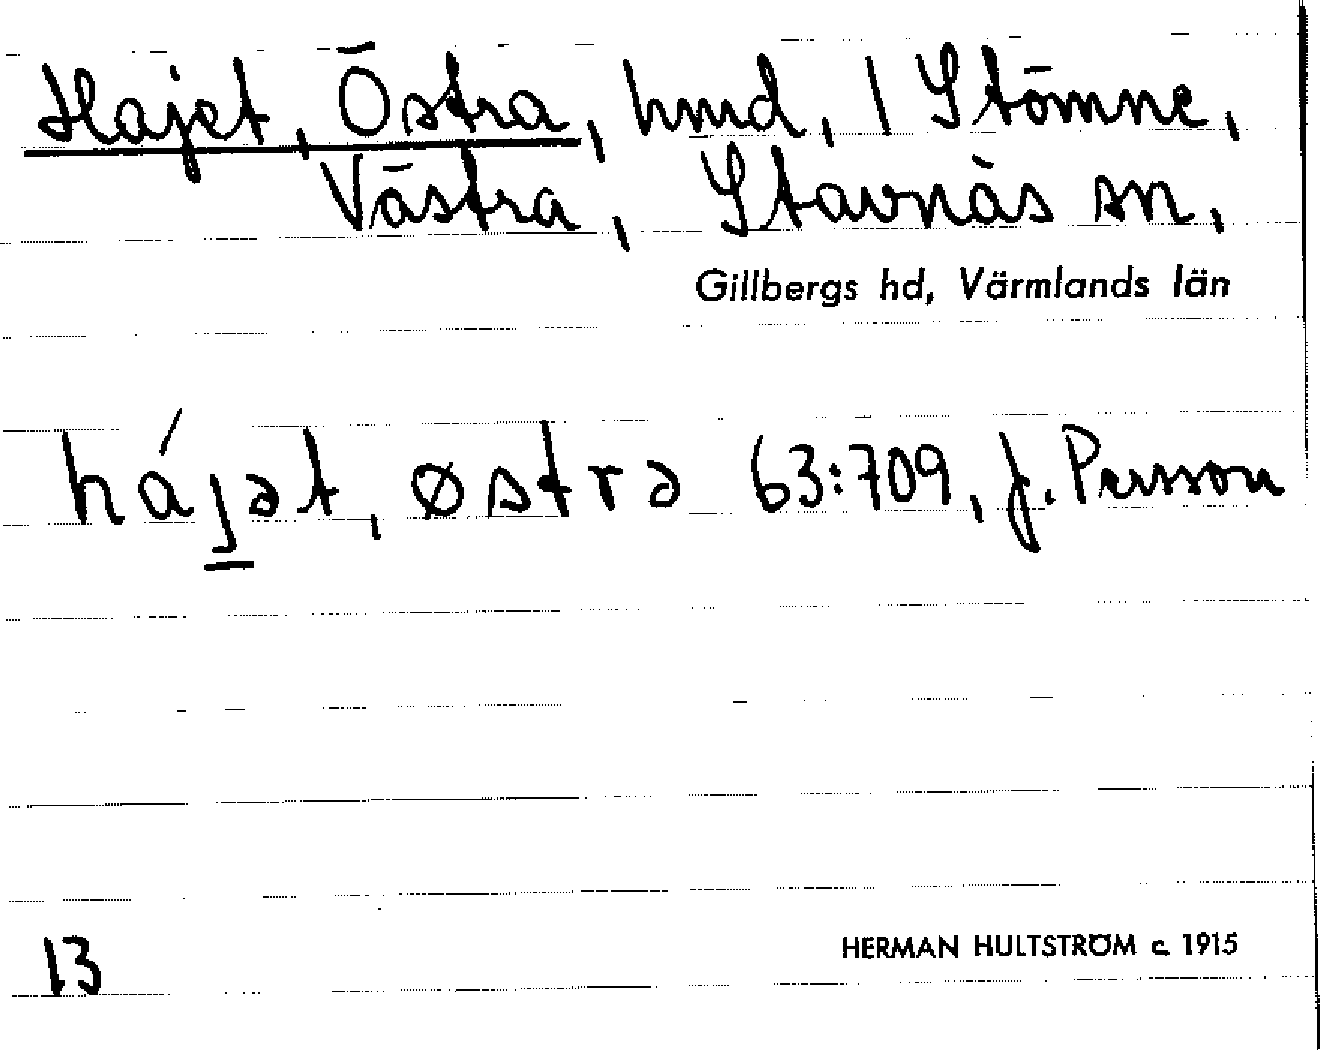 Hajet, Östra, hmd, 1 Stömne,
Västra, Stavnäs sn,
Gillbergs hd, Värmlands län
hájət, østrə 63:709, J. Persson
13
HERMAN HULTSTRÖM c. 1915